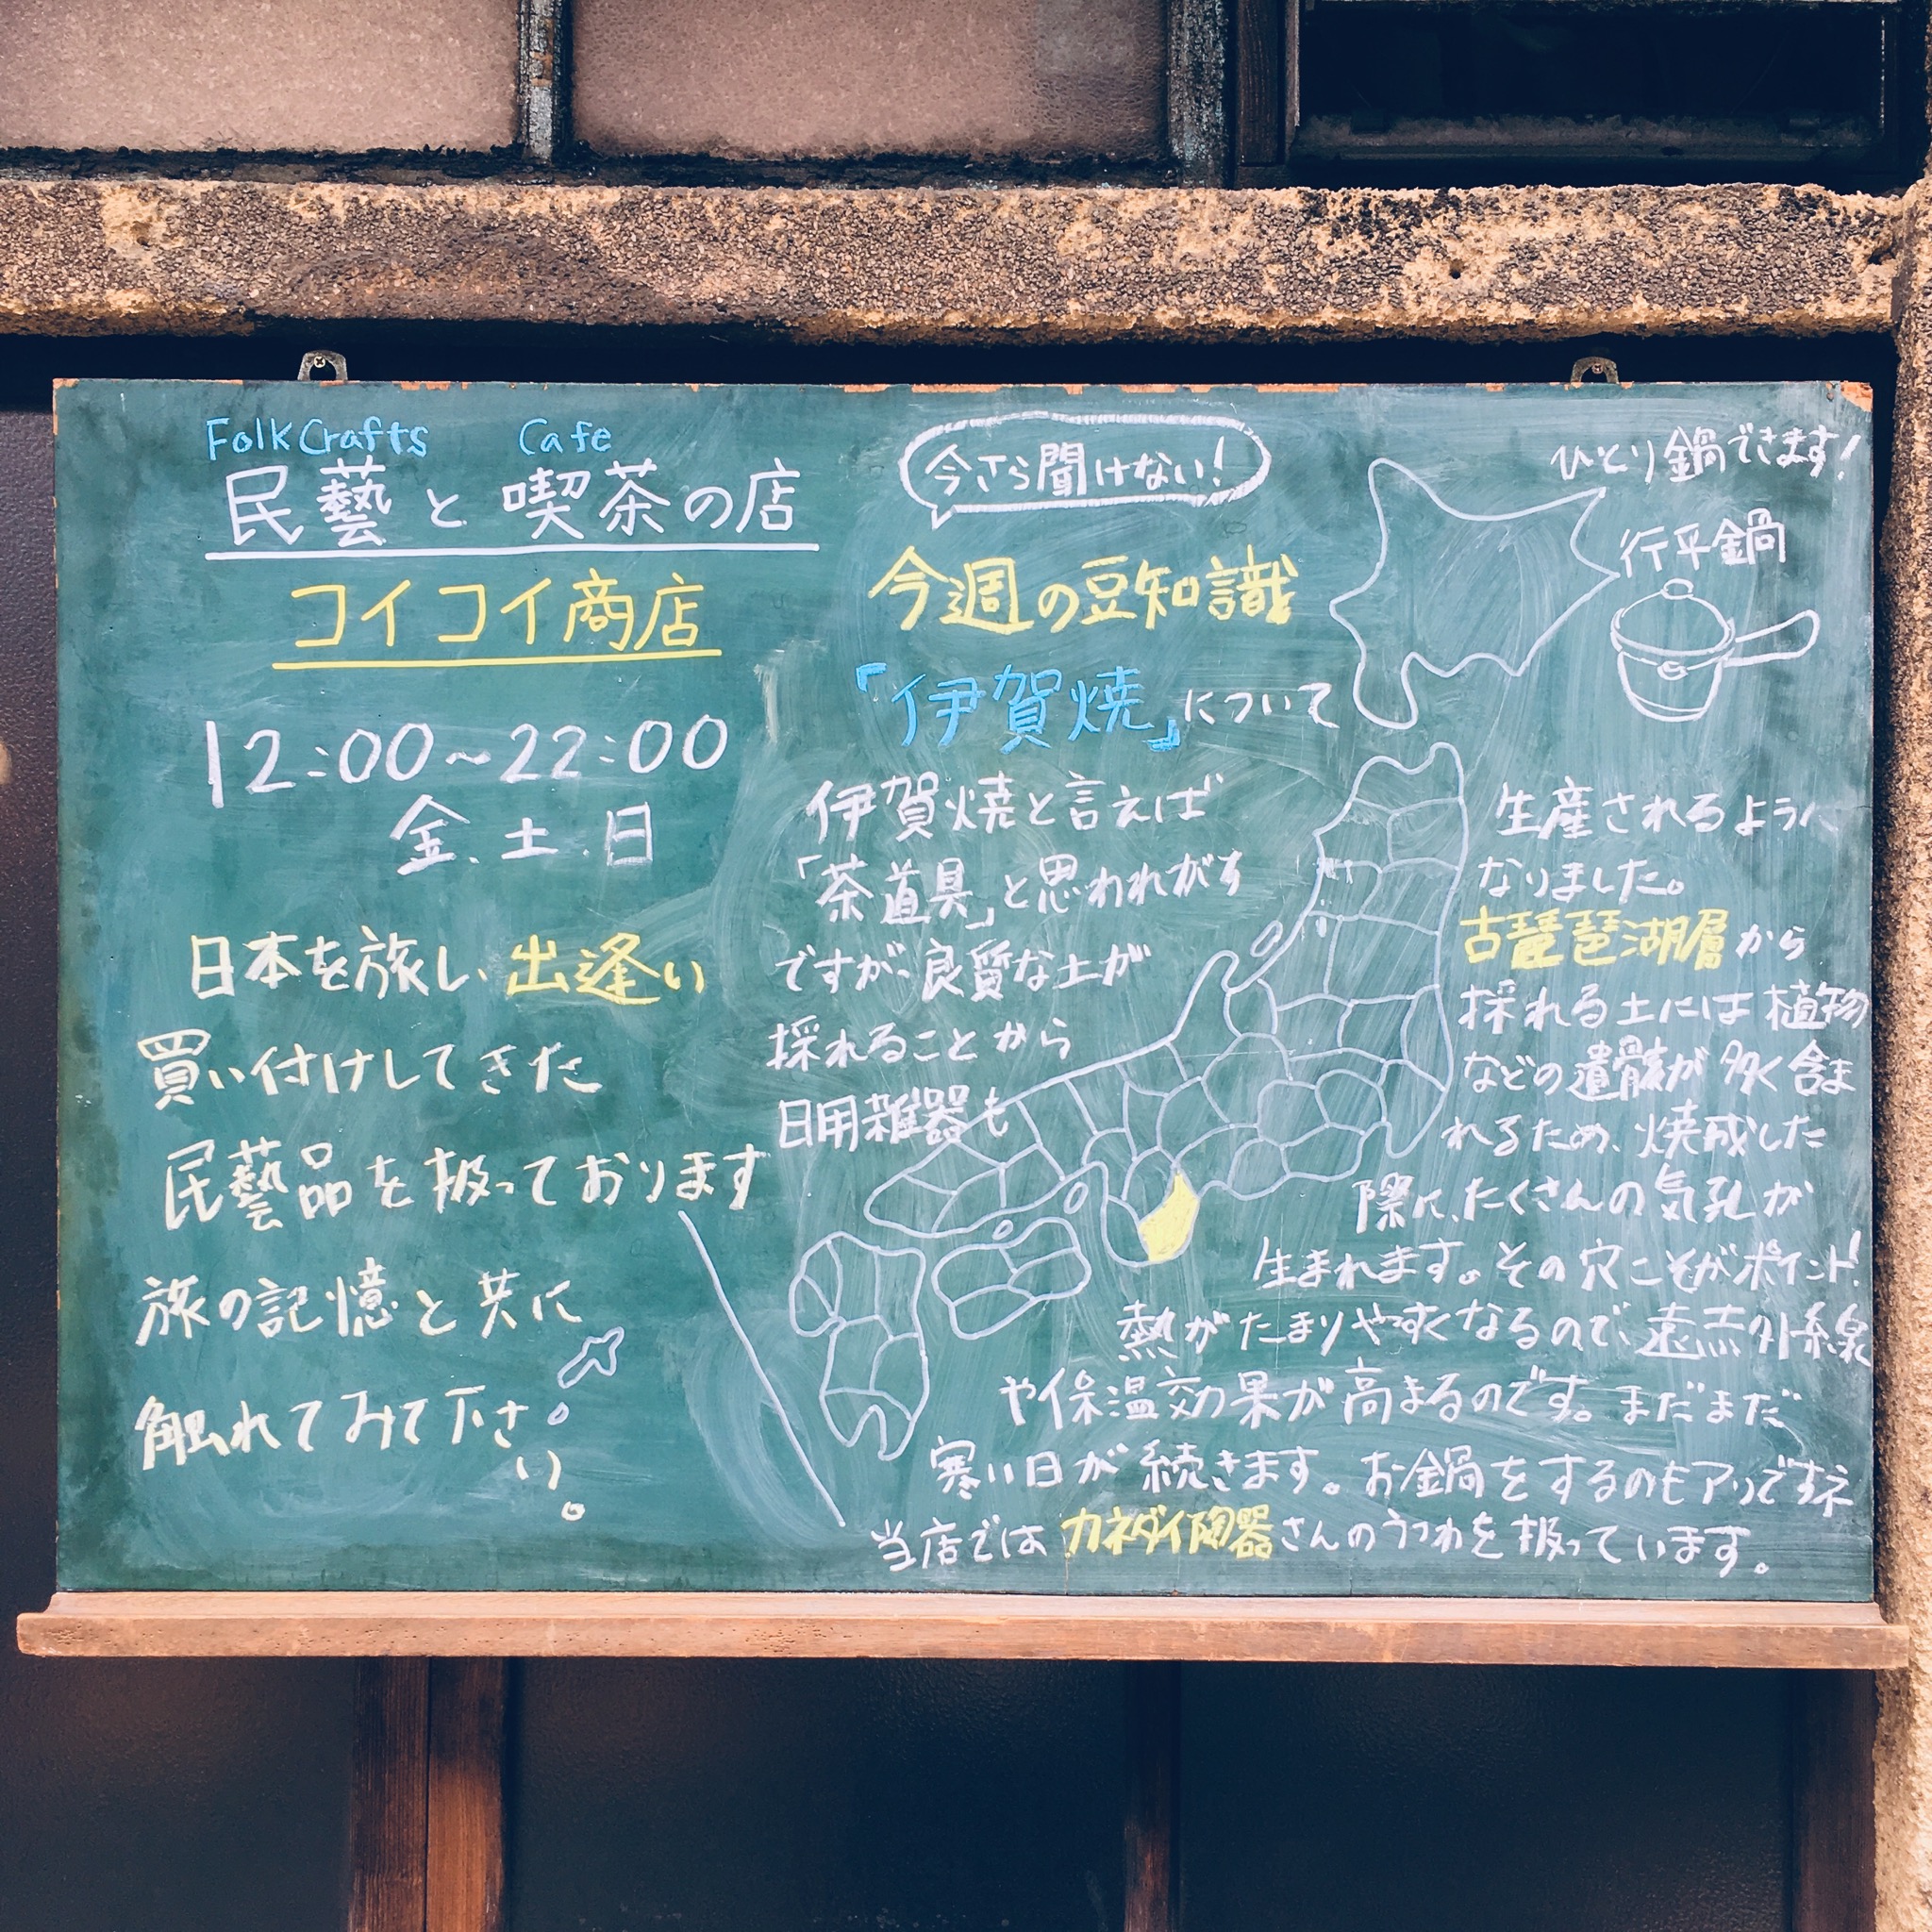 Folk Crafts Cafe
民藝と喫茶の店
コイコイ商店
12:00~22:00
金.土.日
日本を旅し、出逢い
買い付けしてきた
民藝品を扱っております
旅の記憶と共に
触れてみて下さ
い。
今さら聞けない!
今週の豆知識
『伊賀焼』について
伊賀焼と言えば
「茶道具」と思われがち
ですが、良質な土が
採れることから
日用雑器も
ひとり鍋できます!
行平鍋
生産されるように
なりました。
古琵琶湖層から
採れる土には植物
などの遺骸が多く含ま
れるため、焼成した
際に、たくさんの気孔が
生まれます。その穴こそがポイント!
熱がたまりやすくなるので、遠赤外線
や保温効果が高まるのです。まだまだ
寒い日が続きます。お鍋をするのもアリですネ
当店ではカネダイ陶器さんのうつわを扱っています。